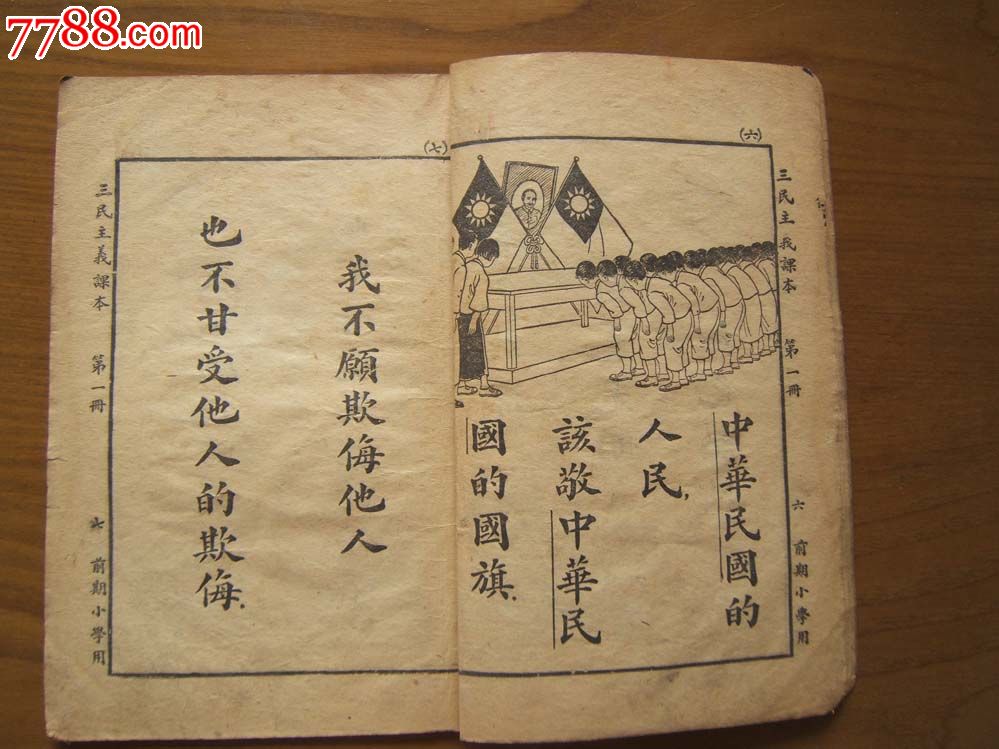 7788.com
(六)
三民主義課本 第一冊 六 前期小學用
中華民國的
人民,
該敬中華民
國的國旗.
(七)
我不願欺侮他人
也不甘受他人的欺侮.
三民主義課本 第一冊 七 前期小學用